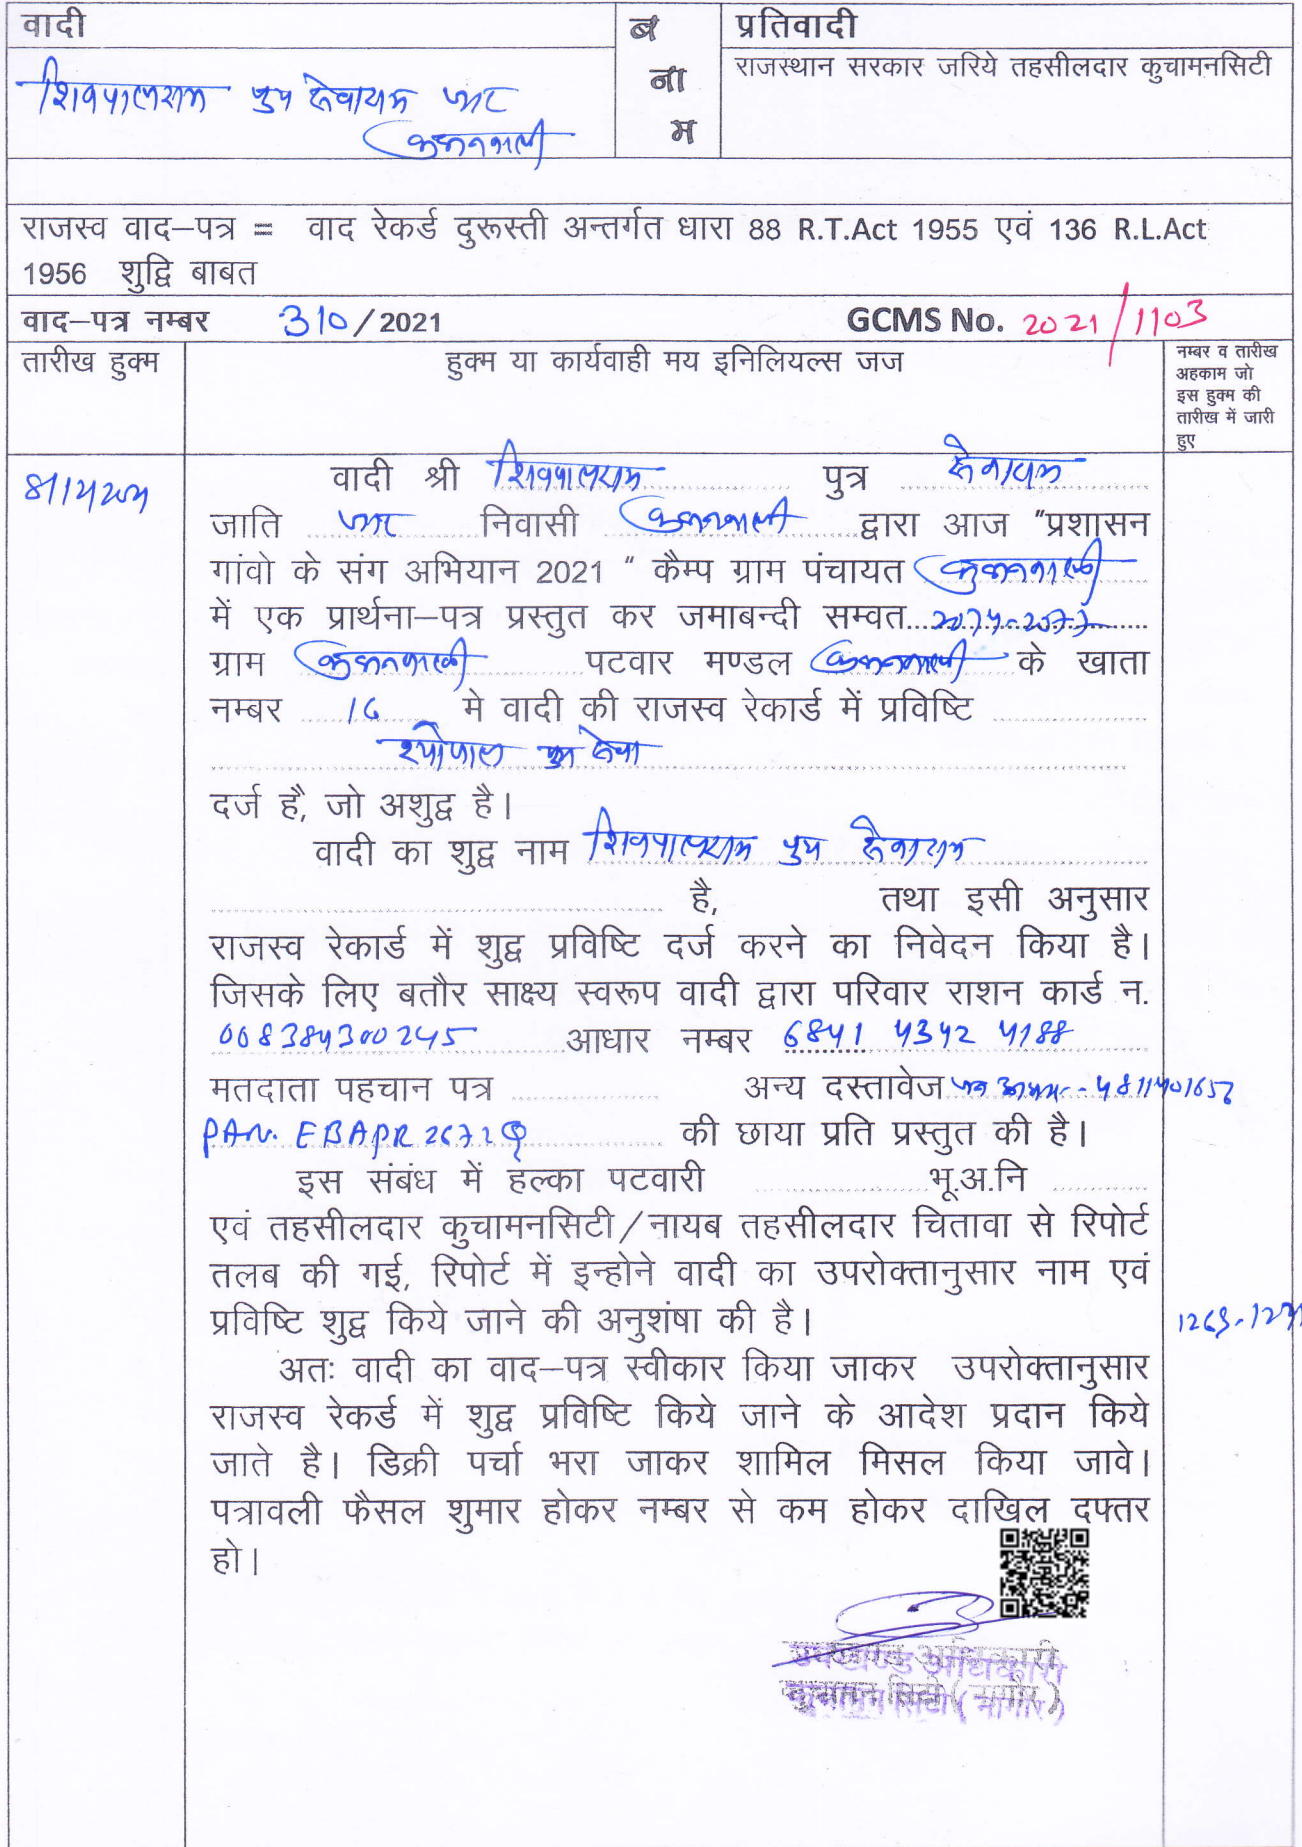 वादी
ब
ना
म
प्रतिवादी
शिवपालराम पुत्र देवाराम जाट
राजस्थान सरकार जरिये तहसीलदार कुचामनसिटी
राजस्व वाद–पत्र = वाद रेकर्ड दुरूस्ती अन्तर्गत धारा 88 R.T.Act 1955 एवं 136 R.L.Act
1956 शुद्वि बाबत
वाद–पत्र नम्बर 310/2021 GCMS No. 2021/1103
तारीख हुक्म
हुक्म या कार्यवाही मय इनिलियल्स जज
नम्बर व तारीख
अहकाम जो
इस हुक्म की
तारीख में जारी
हुए
वादी श्री शिवपालराम पुत्र देवाराम
जाति जाट निवासी द्वारा आज "प्रशासन
गांवो के संग अभियान 2021 " कैम्प ग्राम पंचायत
में एक प्रार्थना–पत्र प्रस्तुत कर जमाबन्दी सम्वत
ग्राम पटवार मण्डल के खाता
नम्बर 16 मे वादी की राजस्व रेकार्ड में प्रविष्टि
श्योपाल पुत्र देवा
दर्ज है, जो अशुद्व है।
वादी का शुद्व नाम शिवपालराम पुत्र देवाराम
है, तथा इसी अनुसार
राजस्व रेकार्ड में शुद्व प्रविष्टि दर्ज करने का निवेदन किया है।
जिसके लिए बतौर साक्ष्य स्वरूप वादी द्वारा परिवार राशन कार्ड न.
008384300245 आधार नम्बर 6841 4342 4188
मतदाता पहचान पत्र अन्य दस्तावेज
PAN. की छाया प्रति प्रस्तुत की है।
इस संबंध में हल्का पटवारी भू.अ.नि
एवं तहसीलदार कुचामनसिटी/नायब तहसीलदार चितावा से रिपोर्ट
तलब की गई, रिपोर्ट में इन्होने वादी का उपरोक्तानुसार नाम एवं
प्रविष्टि शुद्व किये जाने की अनुशंषा की है।
अतः वादी का वाद–पत्र स्वीकार किया जाकर उपरोक्तानुसार
राजस्व रेकर्ड में शुद्व प्रविष्टि किये जाने के आदेश प्रदान किये
जाते है। डिक्री पर्चा भरा जाकर शामिल मिसल किया जावे।
पत्रावली फैसल शुमार होकर नम्बर से कम होकर दाखिल दफ्तर
हो।
उपखण्ड अधिकारी
कुचामन सिटी (नागौर)